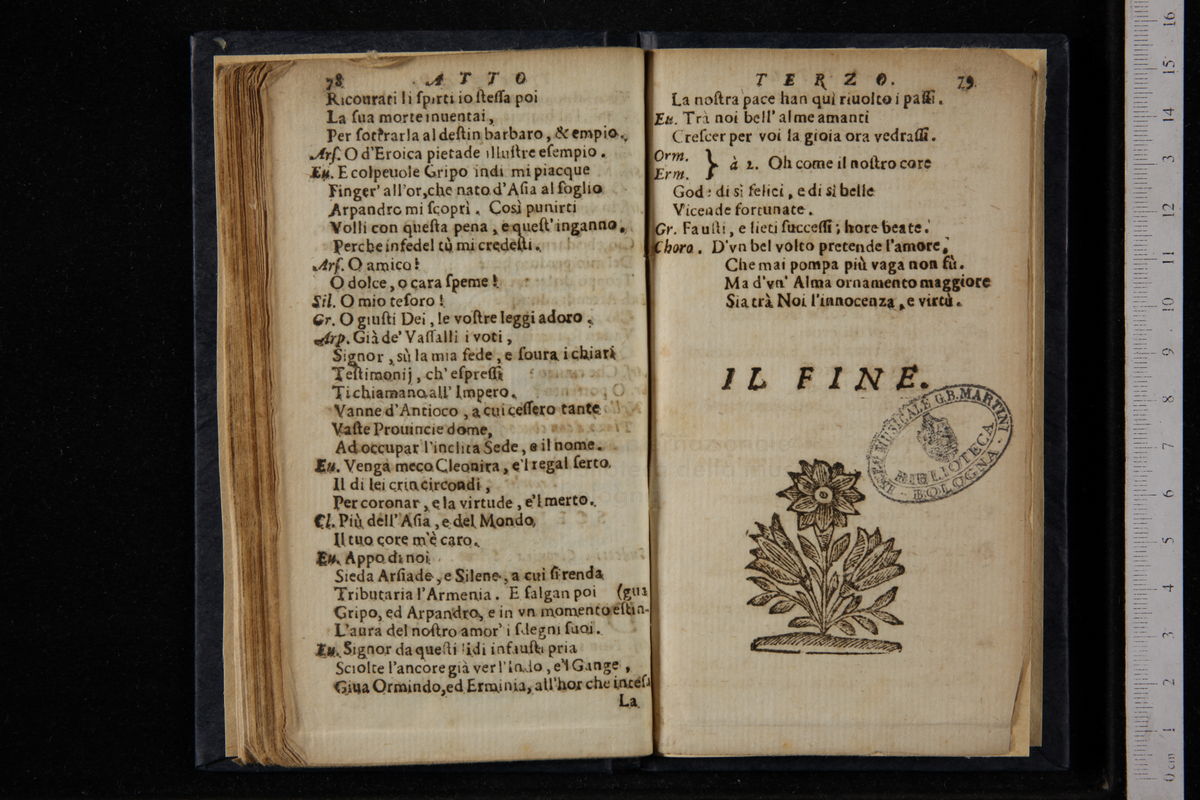 78 ATTO
Ricourati li ſpirti io ſteſſa poi
La ſua morte inuentai,
Per ſottrarla al deſtin barbaro, & empio.
Arſ. O d'Eroica pietade illuſtre eſempio.
Eu. E colpeuole Gripo indi mi piacque
Finger' all'or, che nato d'Aſia al ſoglio
Arpandro mi ſcoprì. Così punirti
Volli con queſta pena, e queſt' inganno.
Perche infedel tù mi credeſti.
Arſ. O amico!
O dolce, o cara ſpeme!
Sil. O mio teſoro!
Gr. O giuſti Dei, le voſtre leggi adoro.
Arp. Già de' Vaſſalli i voti,
Signor, sù la mia fede, e ſoura i chiari
Teſtimonij, ch' eſpreſſi
Ti chiamano all' Impero.
Vanne d'Antioco, a cui ceſſero tante
Vaſte Prouincie dome,
Ad occupar l'inclita Sede, e il nome.
Eu. Venga meco Cleonira, e'l regal ſerto
Il di lei crin circondi,
Per coronar, e la virtude, e'l merto.
Cl. Più dell' Aſia, e del Mondo
Il tuo core m'è caro.
Eu. Appo di noi
Sieda Arſiade, e Silene, a cui ſi renda
Tributaria l'Armenia. E ſalgan poi (gua
Gripo, ed Arpandro, e in vn momento eſtin-
L'aura del noſtro amor' i ſdegni ſuoi.
Eu. Signor da queſti lidi infauſti pria
Sciolte l'ancore già ver l'Indo, e'l Gange,
Giua Ormindo, ed Erminia, all'hor che inteſa
La
TERZO. 79
La noſtra pace han quì riuolto i paſſi.
Eu. Trà noi bell' alme amanti
Creſcer per voi la gioia ora vedraſſi.
Orm.
Erm. } à 2. Oh come il noſtro core
Gode di sì felici, e di sì belle
Vicende fortunate.
Gr. Fauſti, e lieti ſucceſſi; hore beate.
Choro. D'vn bel volto pretende l'amore,
Che mai pompa più vaga non fù.
Ma d'vn' Alma ornamento maggiore
Sia trà Noi l'innocenza, e virtù.
IL FINE.
MUSICALE G.B. MARTINI
BIBLIOTECA
BOLOGNA